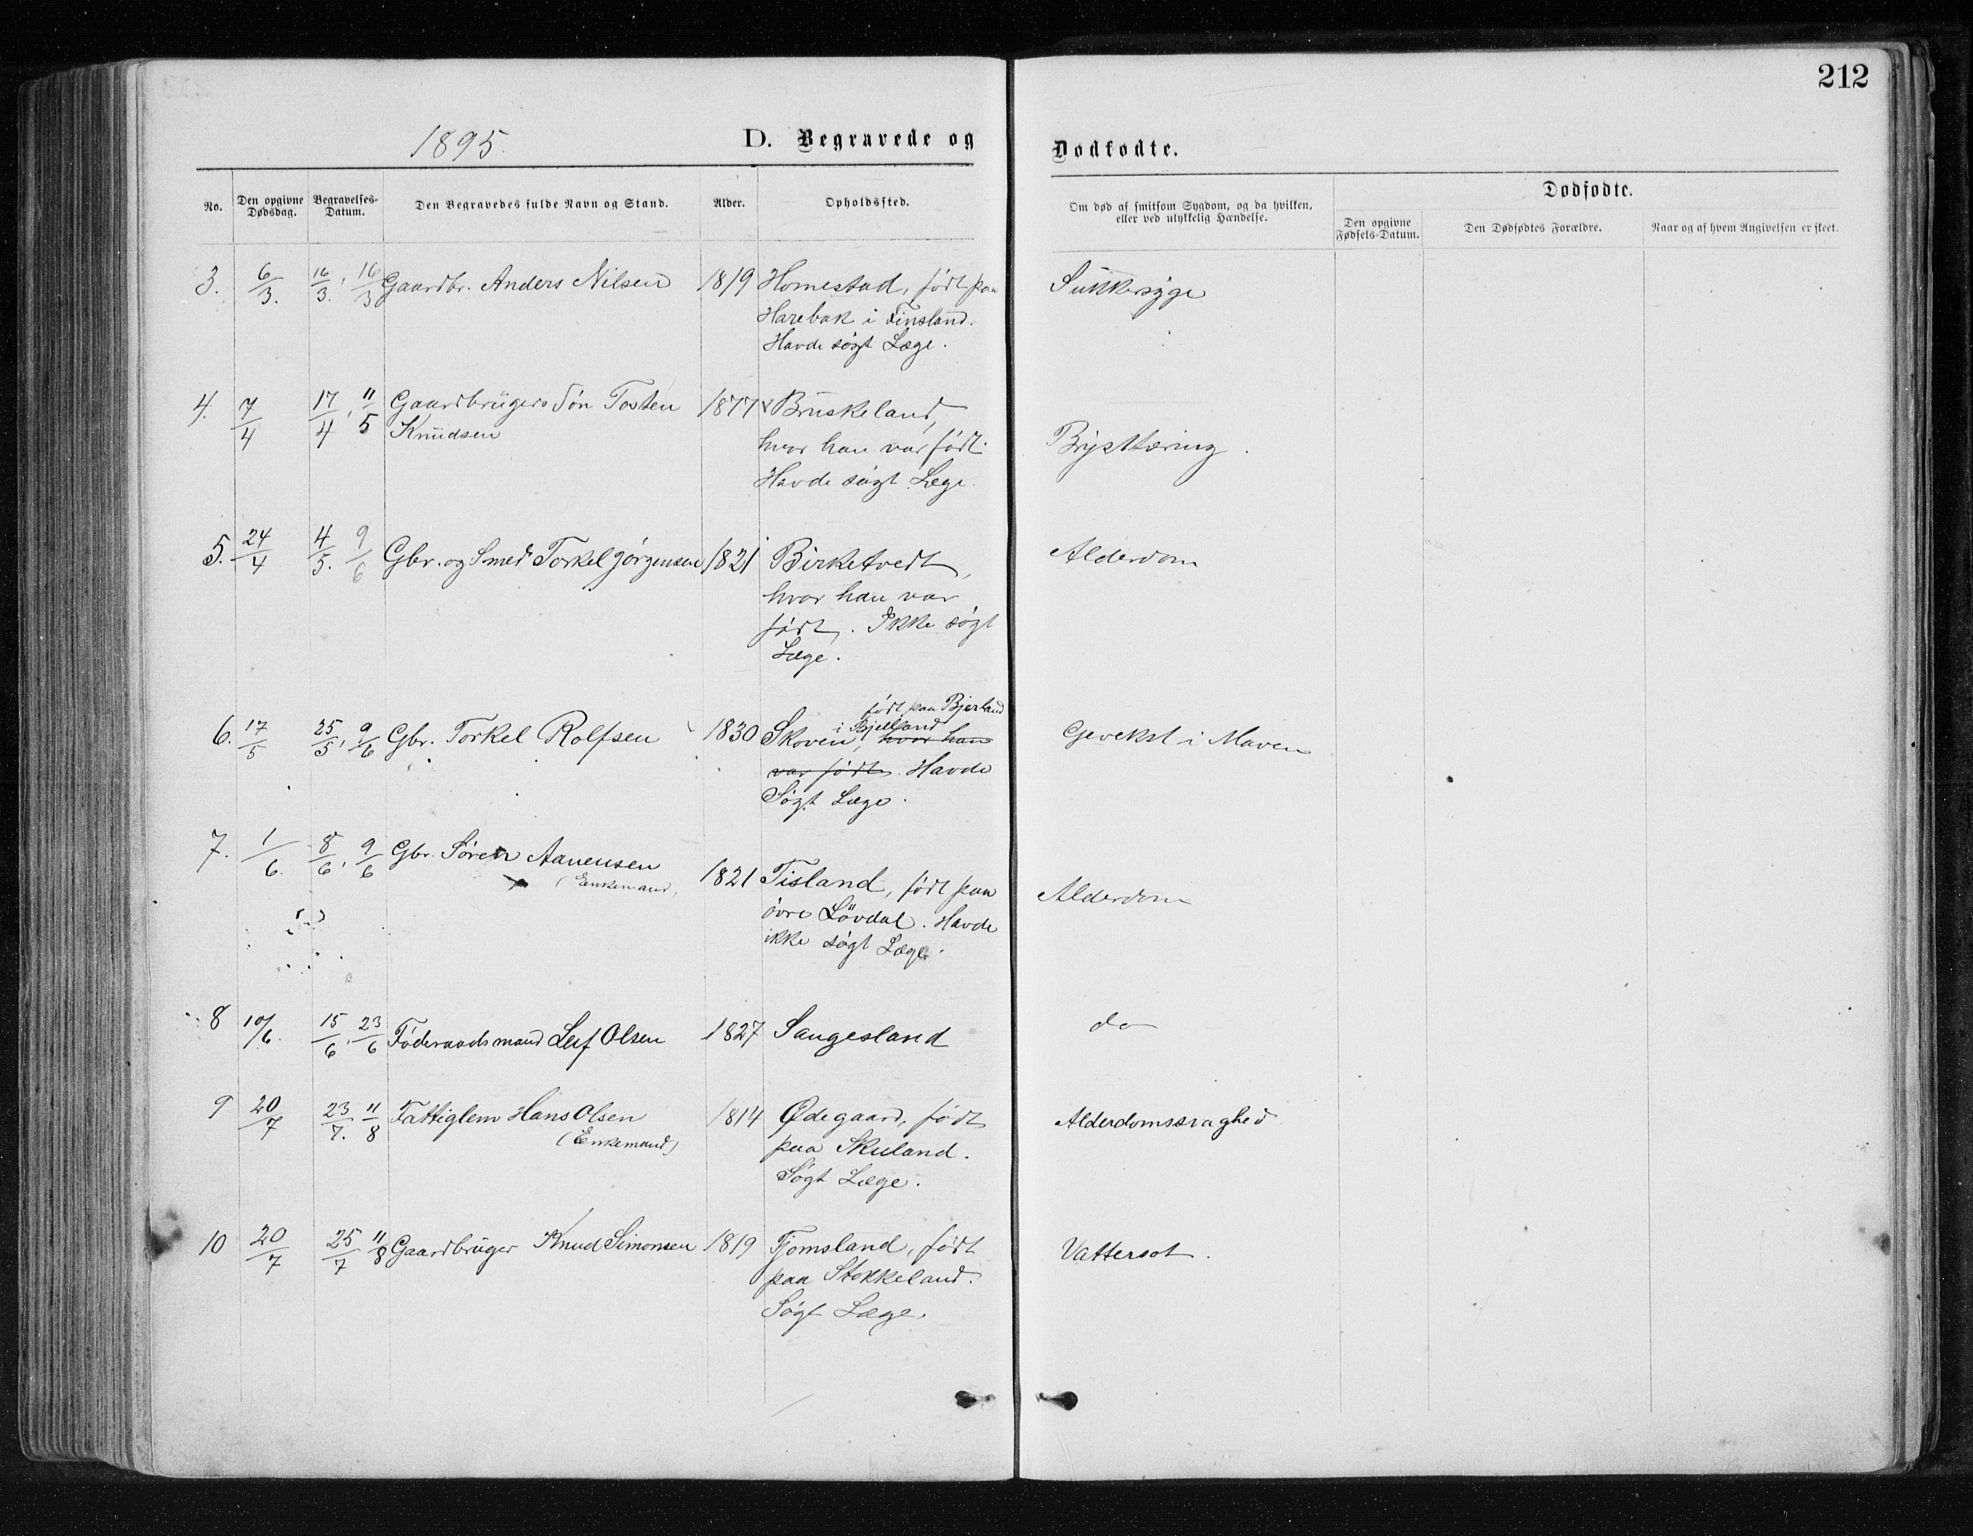 212
1895.
D. Begravede og Dødfødte.
No.
Den opgivne Dødsdag.
Begravelses-Datum.
Den Begravedes fulde Navn og Stand.
Alder.
Opholdssted.
Om død af smitsom Sygdom, og da hvilken, eller ved ulykkelig Hændelse.
Dødfødte.
Den opgivne Fødsels-Datum.
Den Dødfødtes Forældre.
Naar og af hvem Angivelsen er skeet.
3. 6/3. 16/3. 16/3 Gaardbr. Anders Nilsen 1819 Homestad, født paa Sukkersyge
Harebak i Finsland.
Havde søgt Læge.
4. 7/4 17/4, 11/5 Gaardbrugers Søn Tosten 1877 Bruskeland,
Knudsen hvor han var født. Brysttæring.
Havde søgt Læge.
5. 24/4 4/5. 9/6 Gbr. og Smed Torkel Jørgensen 1821 Birketvedt, Alderdom
hvor han var
født. Ikke søgt
Læge.
født paa Bjerland
i Bjelland
6. 17/5 25/5, 9/6 Gbr. Torkel Rolfsen 1830 Skoven, hvor han Gevekst i Maven
var født. Havde
Søgt Læge.
7. 1/6. 8/6, 9/6 Gbr. Søren Aanensen
(Enkemand) 1821 Tisland, født paa Alderdom
övre Lövdal. Havde
ikke søgt Læge.
8 10/6. 15/6. 23/6 Føderaadsmand Leif Olsen 1827 Saugesland do
9 20/7 23/7. 11/8 Fattiglem Hans Olsen 1814 Ødegaard, født Alderdomssvaghed
(Enkemand) paa Skuland.
Søgt Læge.
10 20/7 25/7 11/8 Gaardbruger Knud Simonsen 1819 Fjomsland, født Vattersot.
paa Stokkeland.
Søgt Læge.